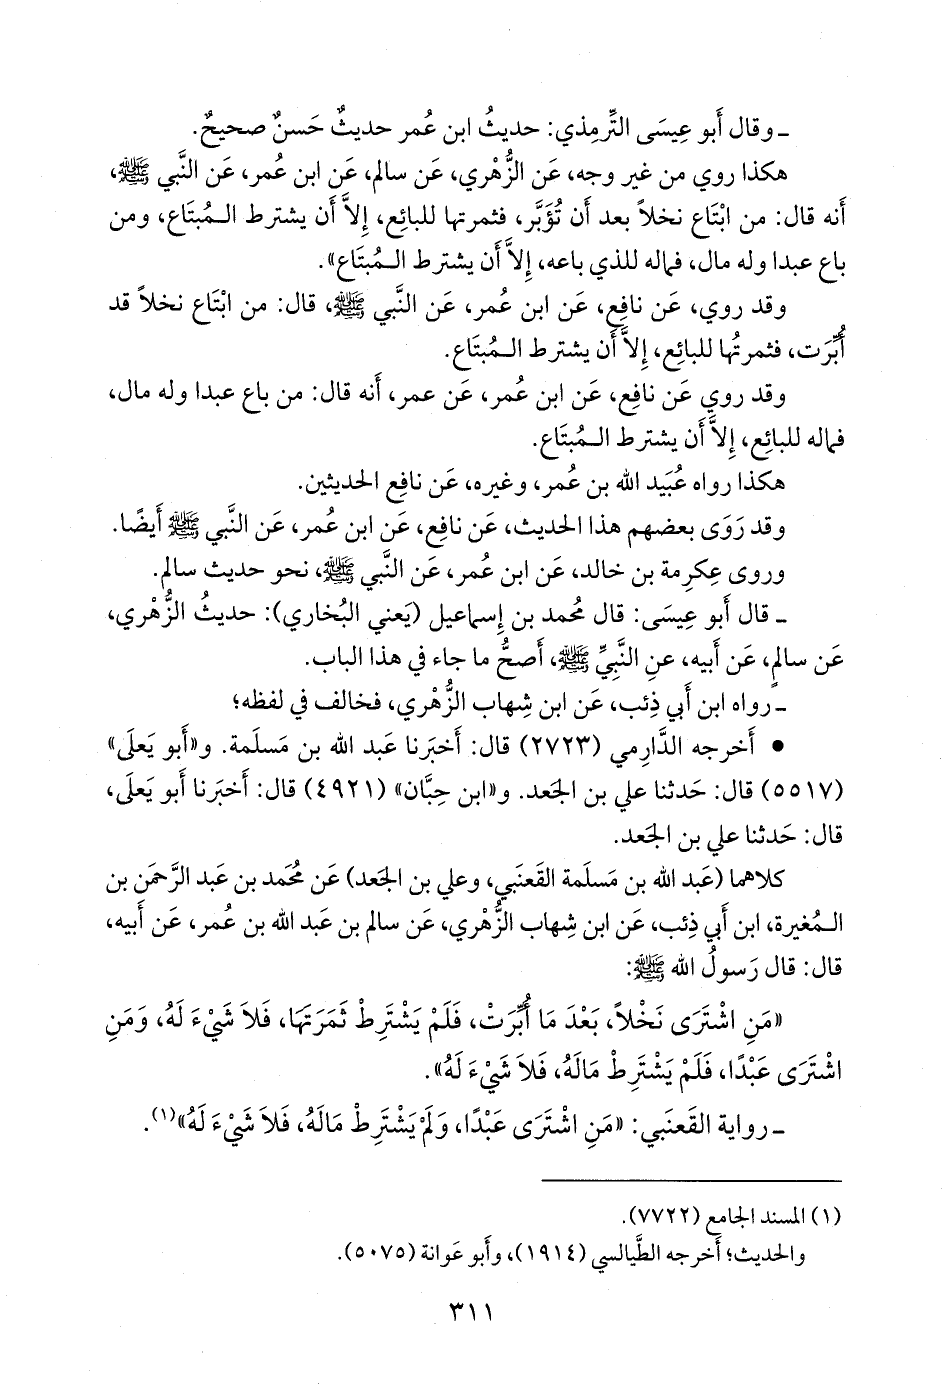 ـ وقال أَبو عِيسَى التِّرمِذي: حديثُ ابن عُمر حديثٌ حَسنٌ صحيحٌ.
هكذا روي من غير وجه، عَن الزُّهْري، عَن سالم، عَن ابن عُمر، عَن النَّبي ﷺ،
أَنه قال: من ابْتَاع نخلاً بعد أَن تُؤَبَّر، فثمرتها للبائِع، إِلاَّ أَن يشترط الـمُبتَاع، ومن
باع عبدا وله مال، فماله للذي باعه، إِلاَّ أَن يشترط الـمُبتَاع».
وقد روي، عَن نافِع، عَن ابن عُمر، عَن النَّبي ﷺ، قال: من ابْتَاع نخلاً قد
أُبِّرَت، فثمرتُها للبائِع، إِلاَّ أَن يشترط الـمُبتَاع.
وقد روي عَن نافِع، عَن ابن عُمر، عَن عمر، أَنه قال: من باع عبدا وله مال،
فماله للبائِع، إِلاَّ أَن يشترط الـمُبتَاع.
هكذا رواه عُبَيد الله بن عُمر، وغيره، عَن نافِع الحديثين.
وقد رَوَى بعضهم هذا الحديث، عَن نافِع، عَن ابن عُمر، عَن النَّبي ﷺ أَيضًا.
وروى عِكرِمة بن خالد، عَن ابن عُمر، عَن النَّبي ﷺ، نحو حديث سالم.
ـ قال أَبو عِيسَى: قال مُحمد بن إِسماعيل (يَعني البُخاري): حديثُ الزُّهْري،
عَن سالمٍ، عَن أَبيه، عنِ النَّبيِّ ﷺ، أَصحُّ ما جاء في هذا الباب.
ـ رواه ابن أَبي ذِئب، عَن ابن شِهاب الزُّهْري، فخالف في لفظه؛
• أَخرجه الدَّارِمي (٢٧٢٣) قال: أَخبَرنا عَبد الله بن مَسلَمة. و«أَبو يَعلَى»
(٥٥١٧) قال: حَدثنا علي بن الجَعد. و«ابن حِبَّان» (٤٩٢١) قال: أَخبَرنا أَبو يَعلَى،
قال: حَدثنا علي بن الجَعد.
كلاهما (عَبد الله بن مَسلَمة القَعنَبي، وعلي بن الجَعد) عَن مُحَمد بن عَبد الرَّحمَن بن
المُغيرة، ابن أَبي ذِئب، عَن ابن شِهاب الزُّهْري، عَن سالم بن عَبد الله بن عُمر، عَن أَبيه،
قال: قال رَسولُ الله ﷺ:
«مَنِ اشْتَرَى نَخْلاً، بَعْدَ مَا أُبِّرَتْ، فَلَمْ يَشْتَرِطْ ثَمَرَتَهَا، فَلاَ شَيْءَ لَهُ، وَمَنِ
اشْتَرَى عَبْدًا، فَلَمْ يَشْتَرِطْ مَالَهُ، فَلاَ شَيْءَ لَهُ».
ـ رواية القَعنَبي: «مَنِ اشْتَرَى عَبْدًا، وَلَمْ يَشْتَرِطْ مَالَهُ، فَلاَ شَيْءَ لَهُ»(١).
(١) المسند الجامع (٧٧٢٢).
والحديث؛ أَخرجه الطَّيالسي (١٩١٤)، وأَبو عَوانة (٥٠٧٥).
٣١١